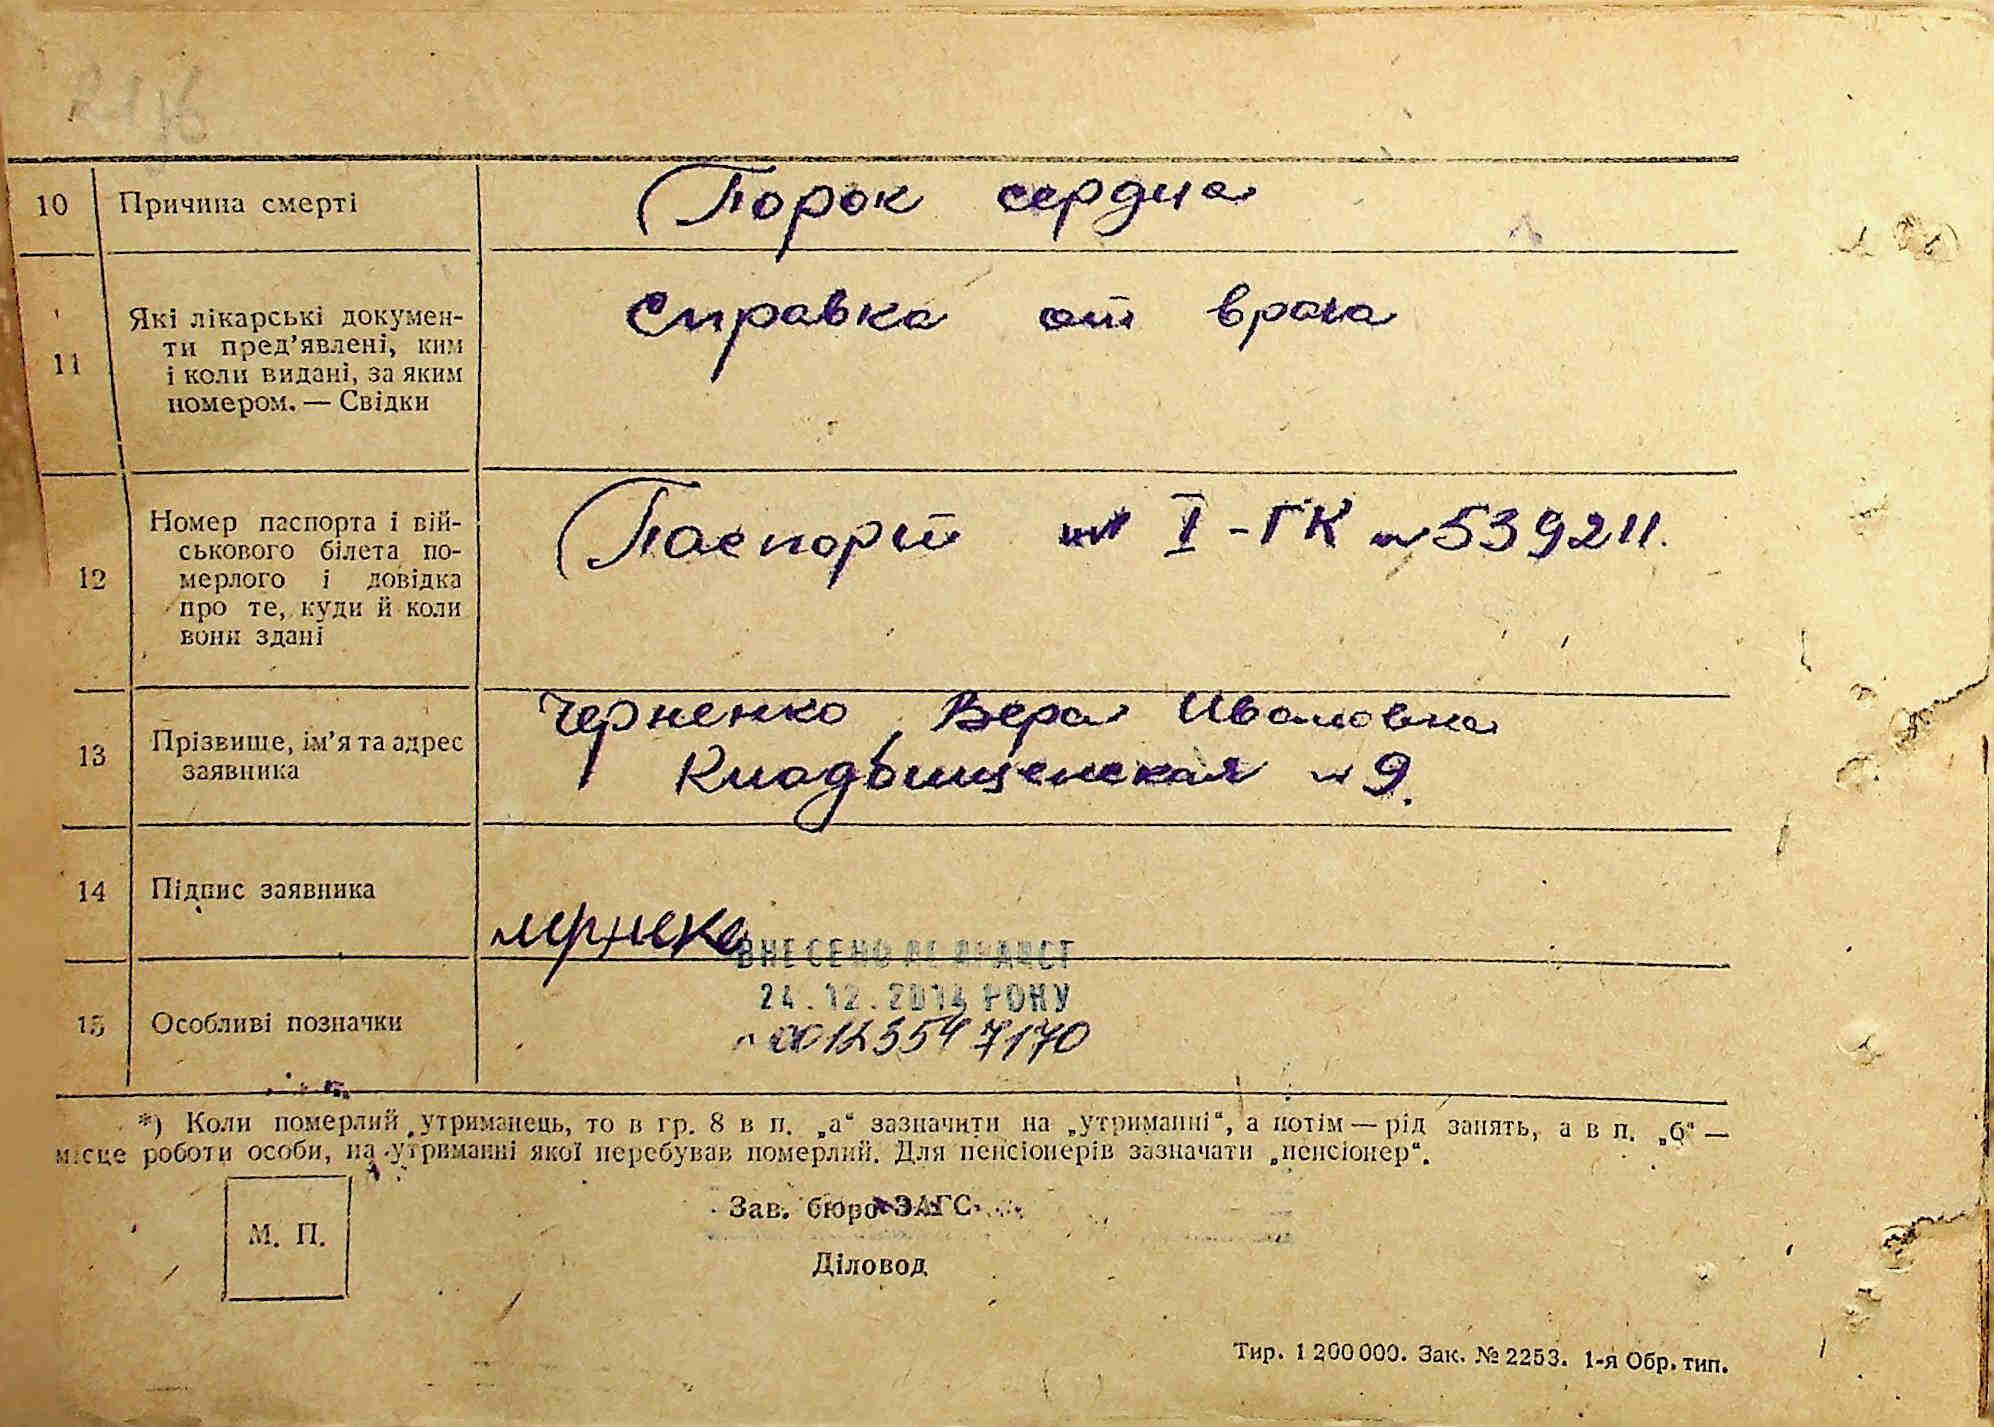 10 Причина смерті Порок сердца
11 Які лікарські докумен-
ти пред’явлені, ким
і коли видані, за яким
номером. — Свідки
Справка от врача
12 Номер паспорта і вій-
ськового білета по-
мерлого і довідка
про те, куди й коли
вони здані
Паспорт I-ГК № 539211.
13 Прізвище, ім’я та адрес
заявника
Черненко Вера Ивановна
Кладбищенская № 9.
14 Підпис заявника
ВНЕСЕНО ДО ДРАЦСГ
24.12.2014 РОКУ
15 Особливі позначки
00123547170
*) Коли померлий утриманець, то в гр. 8 в п. „а“ зазначити на „утриманні“, а потім — рід занять, а в п. „б“ —
місце роботи особи, на утриманні якої перебував померлий. Для пенсіонерів зазначати „пенсіонер“.
М. П.
Зав. бюро ЗАГС
Діловод
Тир. 1 200 000. Зак. № 2253. 1-я Обр. тип.